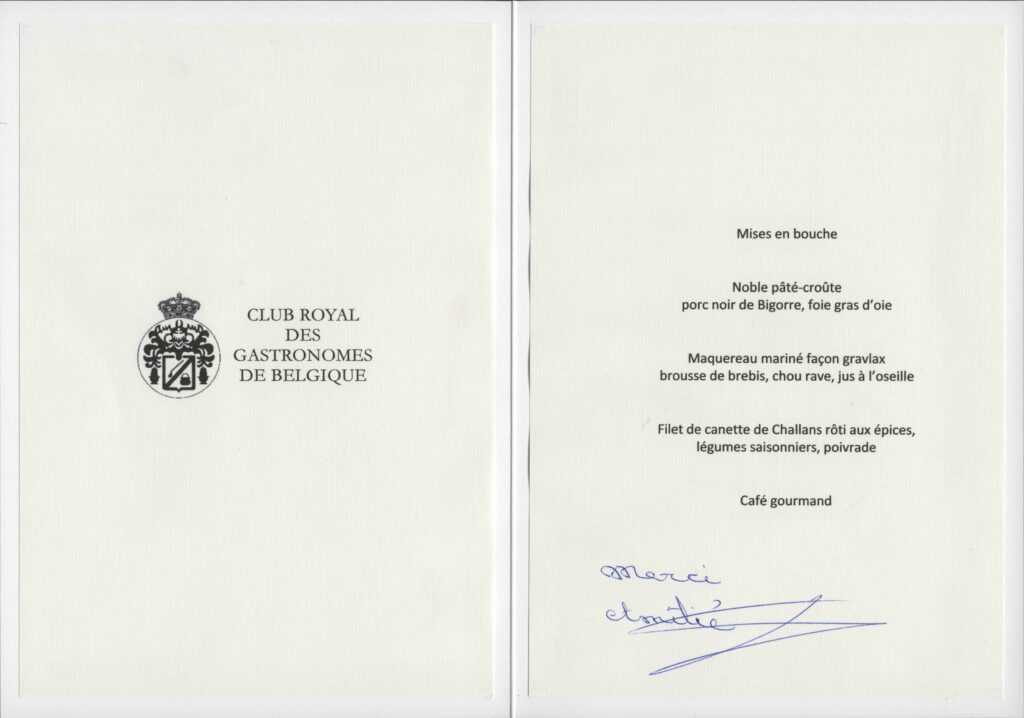 CLUB ROYAL
DES
GASTRONOMES
DE BELGIQUE
Mises en bouche
Noble pâté-croûte
porc noir de Bigorre, foie gras d'oie
Maquereau mariné façon gravlax
brousse de brebis, chou rave, jus à l'oseille
Filet de canette de Challans rôti aux épices,
légumes saisonniers, poivrade
Café gourmand
Merci
Amitié